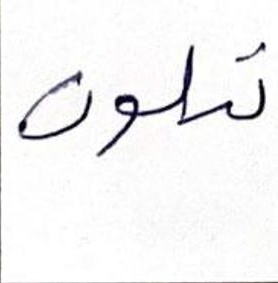 تلون